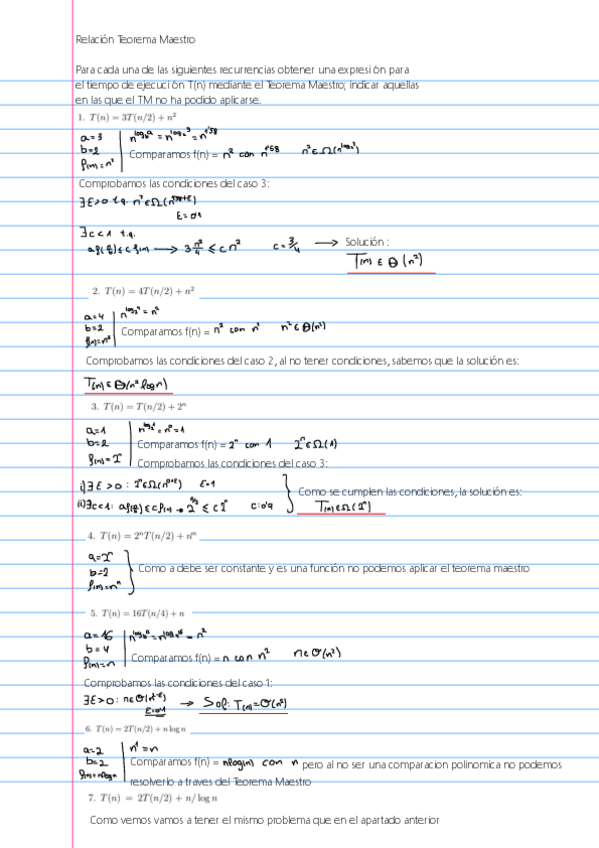 Relación Teorema Maestro
Para cada una de las siguientes recurrencias obtener una expresión para
el tiempo de ejecución T(n) mediante el Teorema Maestro; indicar aquellas
en las que el TM no ha podido aplicarse.
1. T(n) = 3T(n/2) + n²
a=3 n^log_b a = n^log_2 3 = n^1'58
b=2 Comparamos f(n) = n² con n^1'58 n² ∈ Ω(n^log_2 3)
f(n)=n²
Comprobamos las condiciones del caso 3:
∃ε>0 t.q. n² ∈ Ω(n^1'58+ε)
ε=0'1
∃c<1 t.q.
af(n/b) ≤ c f(n) → 3 n²/4 ≤ c n² c = 3/4 → Solución :
T(n) ∈ Θ(n²)
2. T(n) = 4T(n/2) + n²
a=4 n^log_2 4 = n²
b=2 Comparamos f(n) = n² con n² n² ∈ Θ(n²)
f(n)=n²
Comprobamos las condiciones del caso 2, al no tener condiciones, sabemos que la solución es:
T(n) ∈ Θ(n² log n)
3. T(n) = T(n/2) + 2ⁿ
a=1 n^log_2 1 = n⁰ = 1
b=2 Comparamos f(n) = 2ⁿ con 1 2ⁿ ∈ Ω(1)
f(n)=2ⁿ Comprobamos las condiciones del caso 3:
i) ∃ε>0 : 2ⁿ ∈ Ω(n^0+ε) ε=1
Como se cumplen las condiciones, la solución es:
ii) ∃c<1 : af(n/b) ≤ c f(n) → 2^n/2 ≤ c 2ⁿ c=0'9 T(n) ∈ Ω(2ⁿ)
4. T(n) = 2ⁿT(n/2) + nⁿ
a=2ⁿ
b=2 Como a debe ser constante y es una función no podemos aplicar el teorema maestro
f(n)=nⁿ
5. T(n) = 16T(n/4) + n
a=16 n^log_b a = n^log_4 16 = n²
b=4 Comparamos f(n) = n con n² n ∈ O(n²)
f(n)=n
Comprobamos las condiciones del caso 1:
∃ε>0 : n ∈ O(n^2-ε) → Sol: T(n) = O(n²)
ε=0'1
6. T(n) = 2T(n/2) + n log n
a=2 n¹ = n
b=2 Comparamos f(n) = nlog(n) con n pero al no ser una comparacion polinomica no podemos
f(n)=nlogn resolverlo a traves del Teorema Maestro
7. T(n) = 2T(n/2) + n/ log n
Como vemos vamos a tener el mismo problema que en el apartado anterior